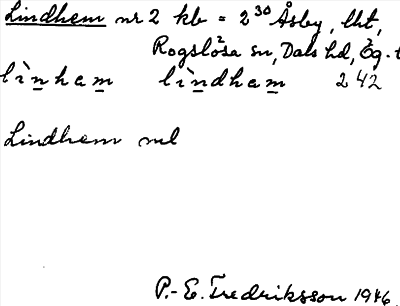 Lindhem nr 2 kb = 2³⁰ Åsby, lht,
Rogslösa sn, Dals hd, Ög. 
lìnham lìndham 242
Lindhem ml
P.-E. Fredriksson 1946.